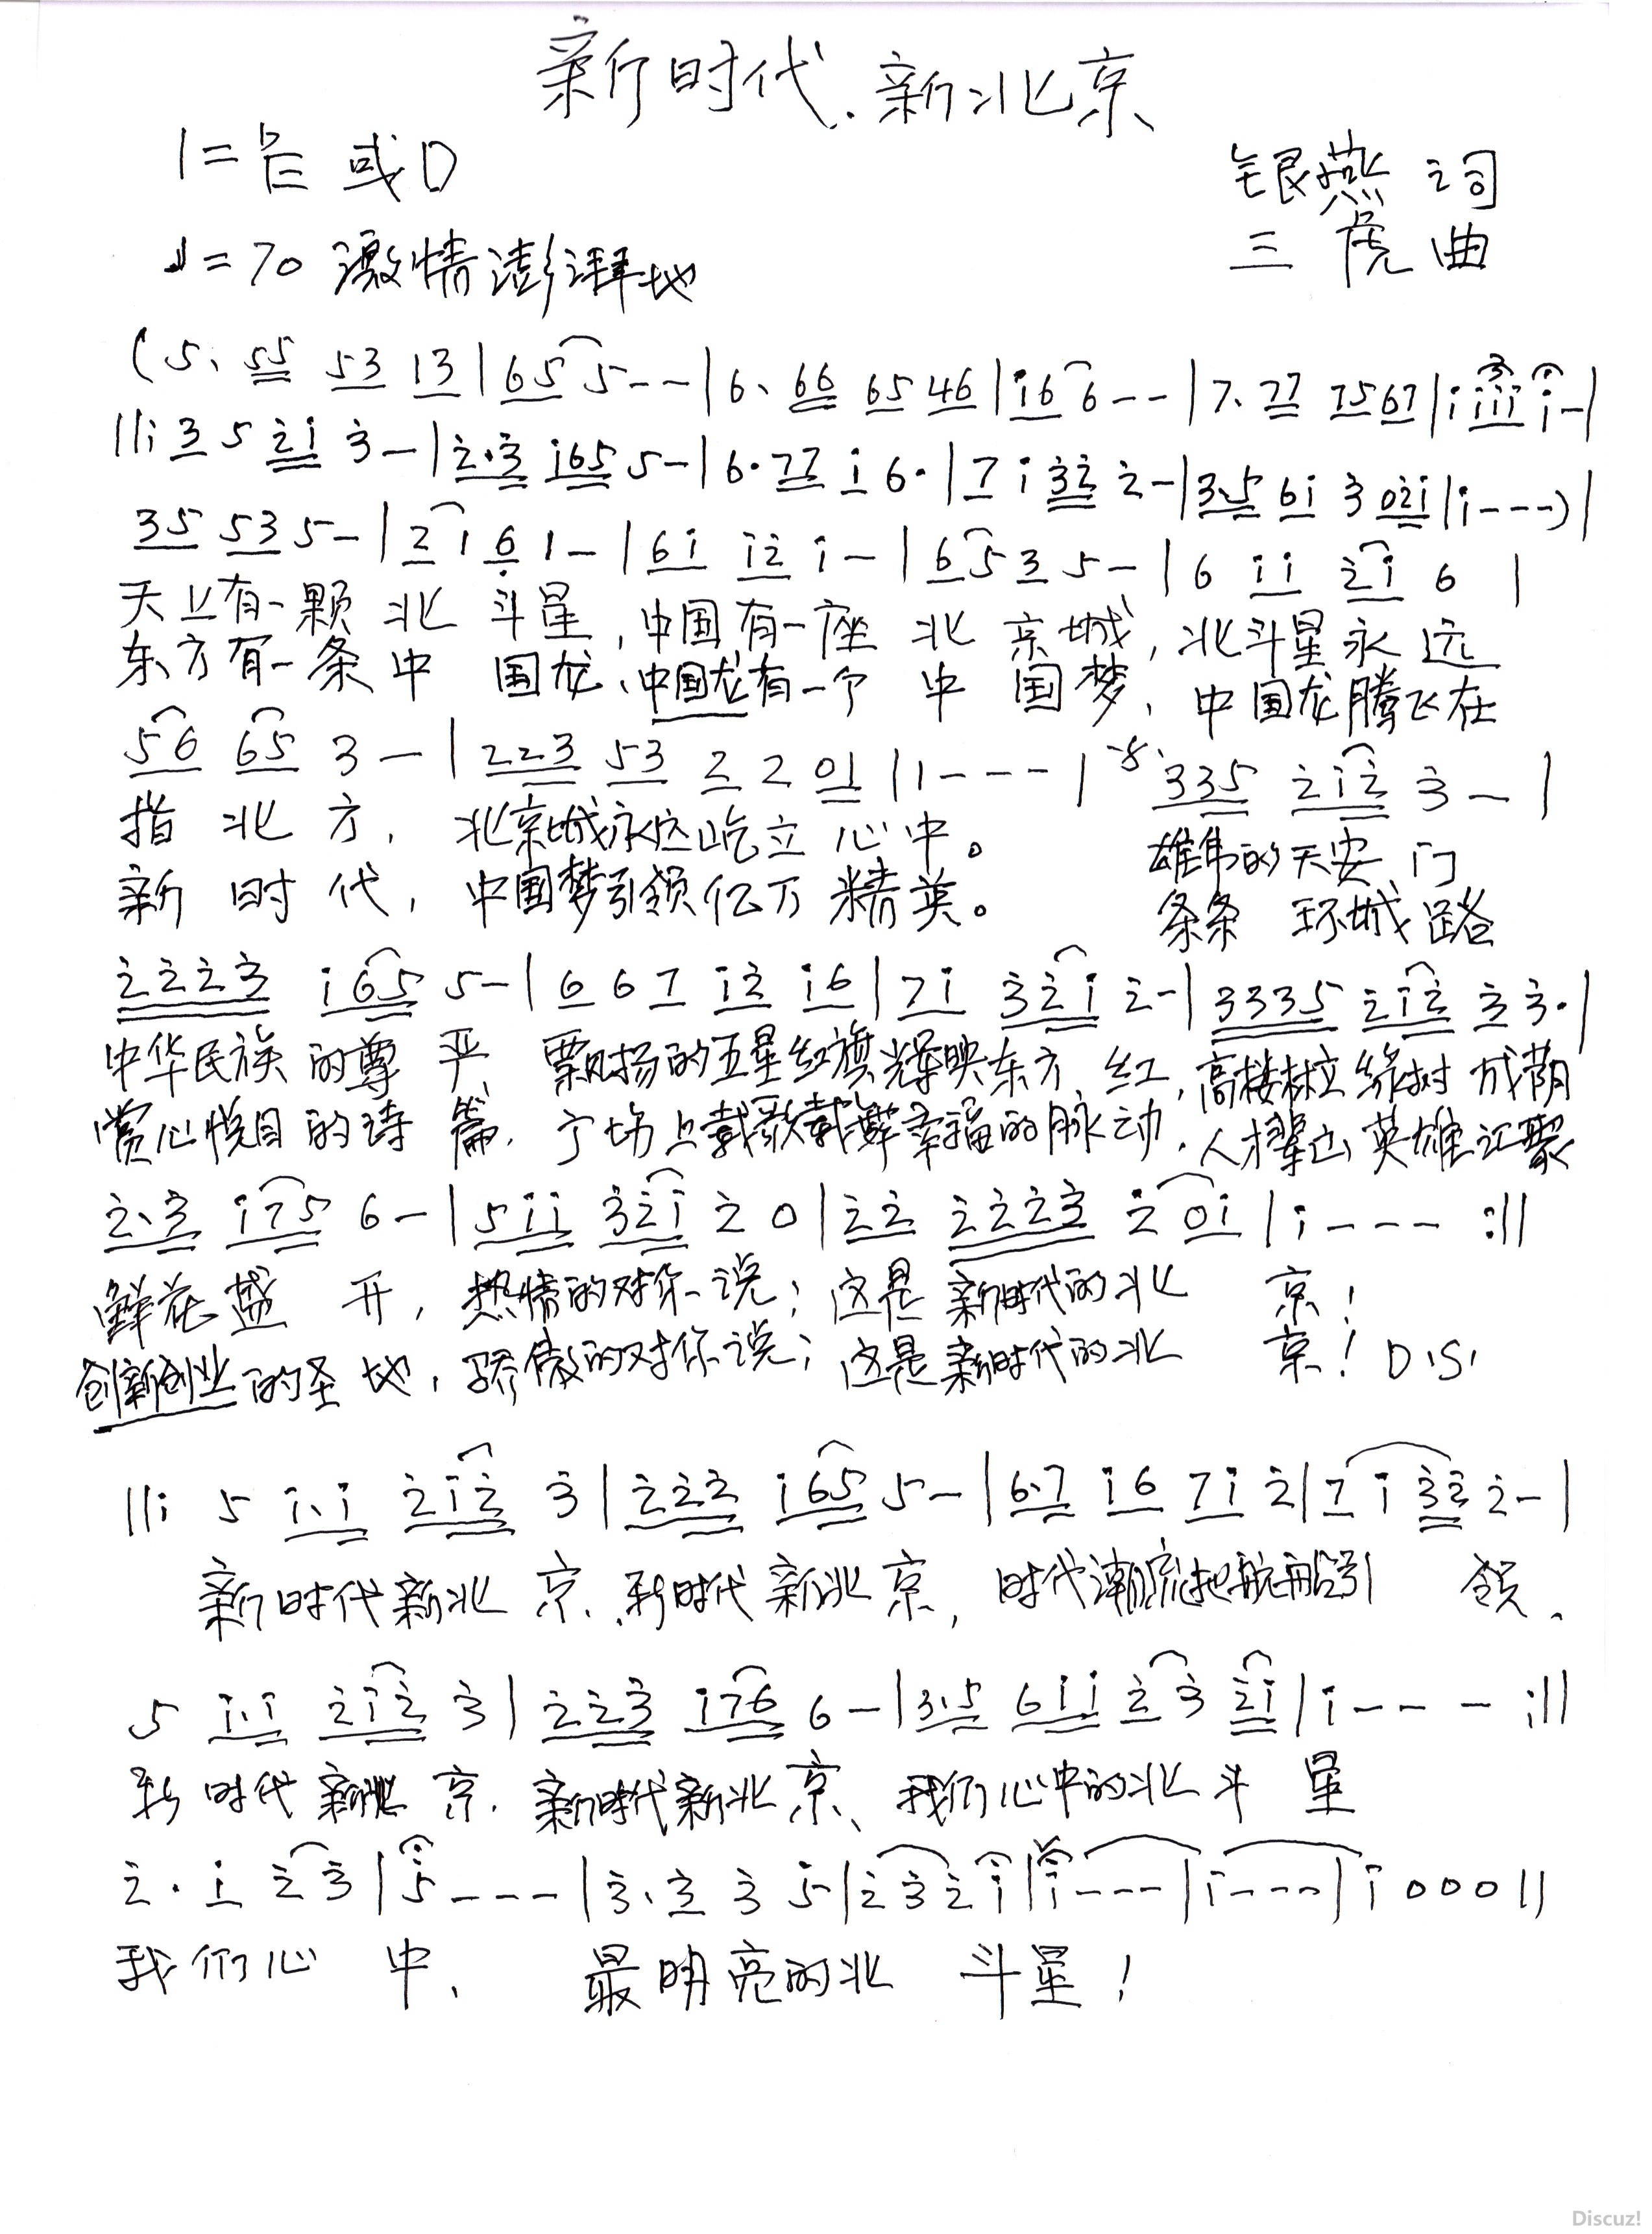 新时代、新北京
1=♭E 或D
银燕 词
♩=70 激情澎湃地
三虎 曲
(5. 55 53 13|65 5--|6. 66 65 46|i6 6--|7. 77 7567|i iii i-|
||: 3 5 2i 3-|2.3 i65 5-|6.77 i 6.|7 i 32 2-|3.5 6i 3 02i|i---)|
35 53 5-|2 1 6 1-|6i i2 i-|65 3 5-|6 ii 2i 6|
天上有一颗 北 斗星,中国有一座 北 京城,北斗星永远
东方有一条中 国龙、中国龙有一个 中 国梦,中国龙腾飞在
56 65 3-|223 53 2 2 01|1---| 335 2i2 3-|
指 北 方, 北京城永远屹立 心中。 雄伟的天安 门
新 时 代, 中国梦引领亿万 精英。 条条 环城路
2223 i65 5-|6 6 7 i2 i6|7i 32i 2-|3335 2i2 3 3.|
中华民族 的尊 严 飘扬的五星红旗辉映东方 红,高楼林立 绿树 成荫
赏心悦目 的诗 篇, 广场上载歌载舞幸福的脉动,人才 英雄汇聚
2.3 i75 6-|5ii 32i 2 0|22 2223 2 0i|i---:||
鲜花盛 开, 热情的对你说;这是 新时代的北 京!
创新创业的圣 地,骄傲的对你说;这是新时代的北 京! D.S.
||: 5 i.i 2i2 3|222 i65 5-|6.7 i6 7i 2|7 i 32 2-|
新时代新北 京、新时代新北京,时代潮流起航船引 领、
5 i.i 2i2 3|223 i76 6-|3.5 6ii 2 3 2i|i---:||
新 时代 新北 京、新时代新北京、我们心中的北 斗 星
2. i 2 3|5---|3. 3 3 5|2 3 2 i|i---|i---|i 000||
我们心 中、 最明亮的北 斗星!
Discuz!